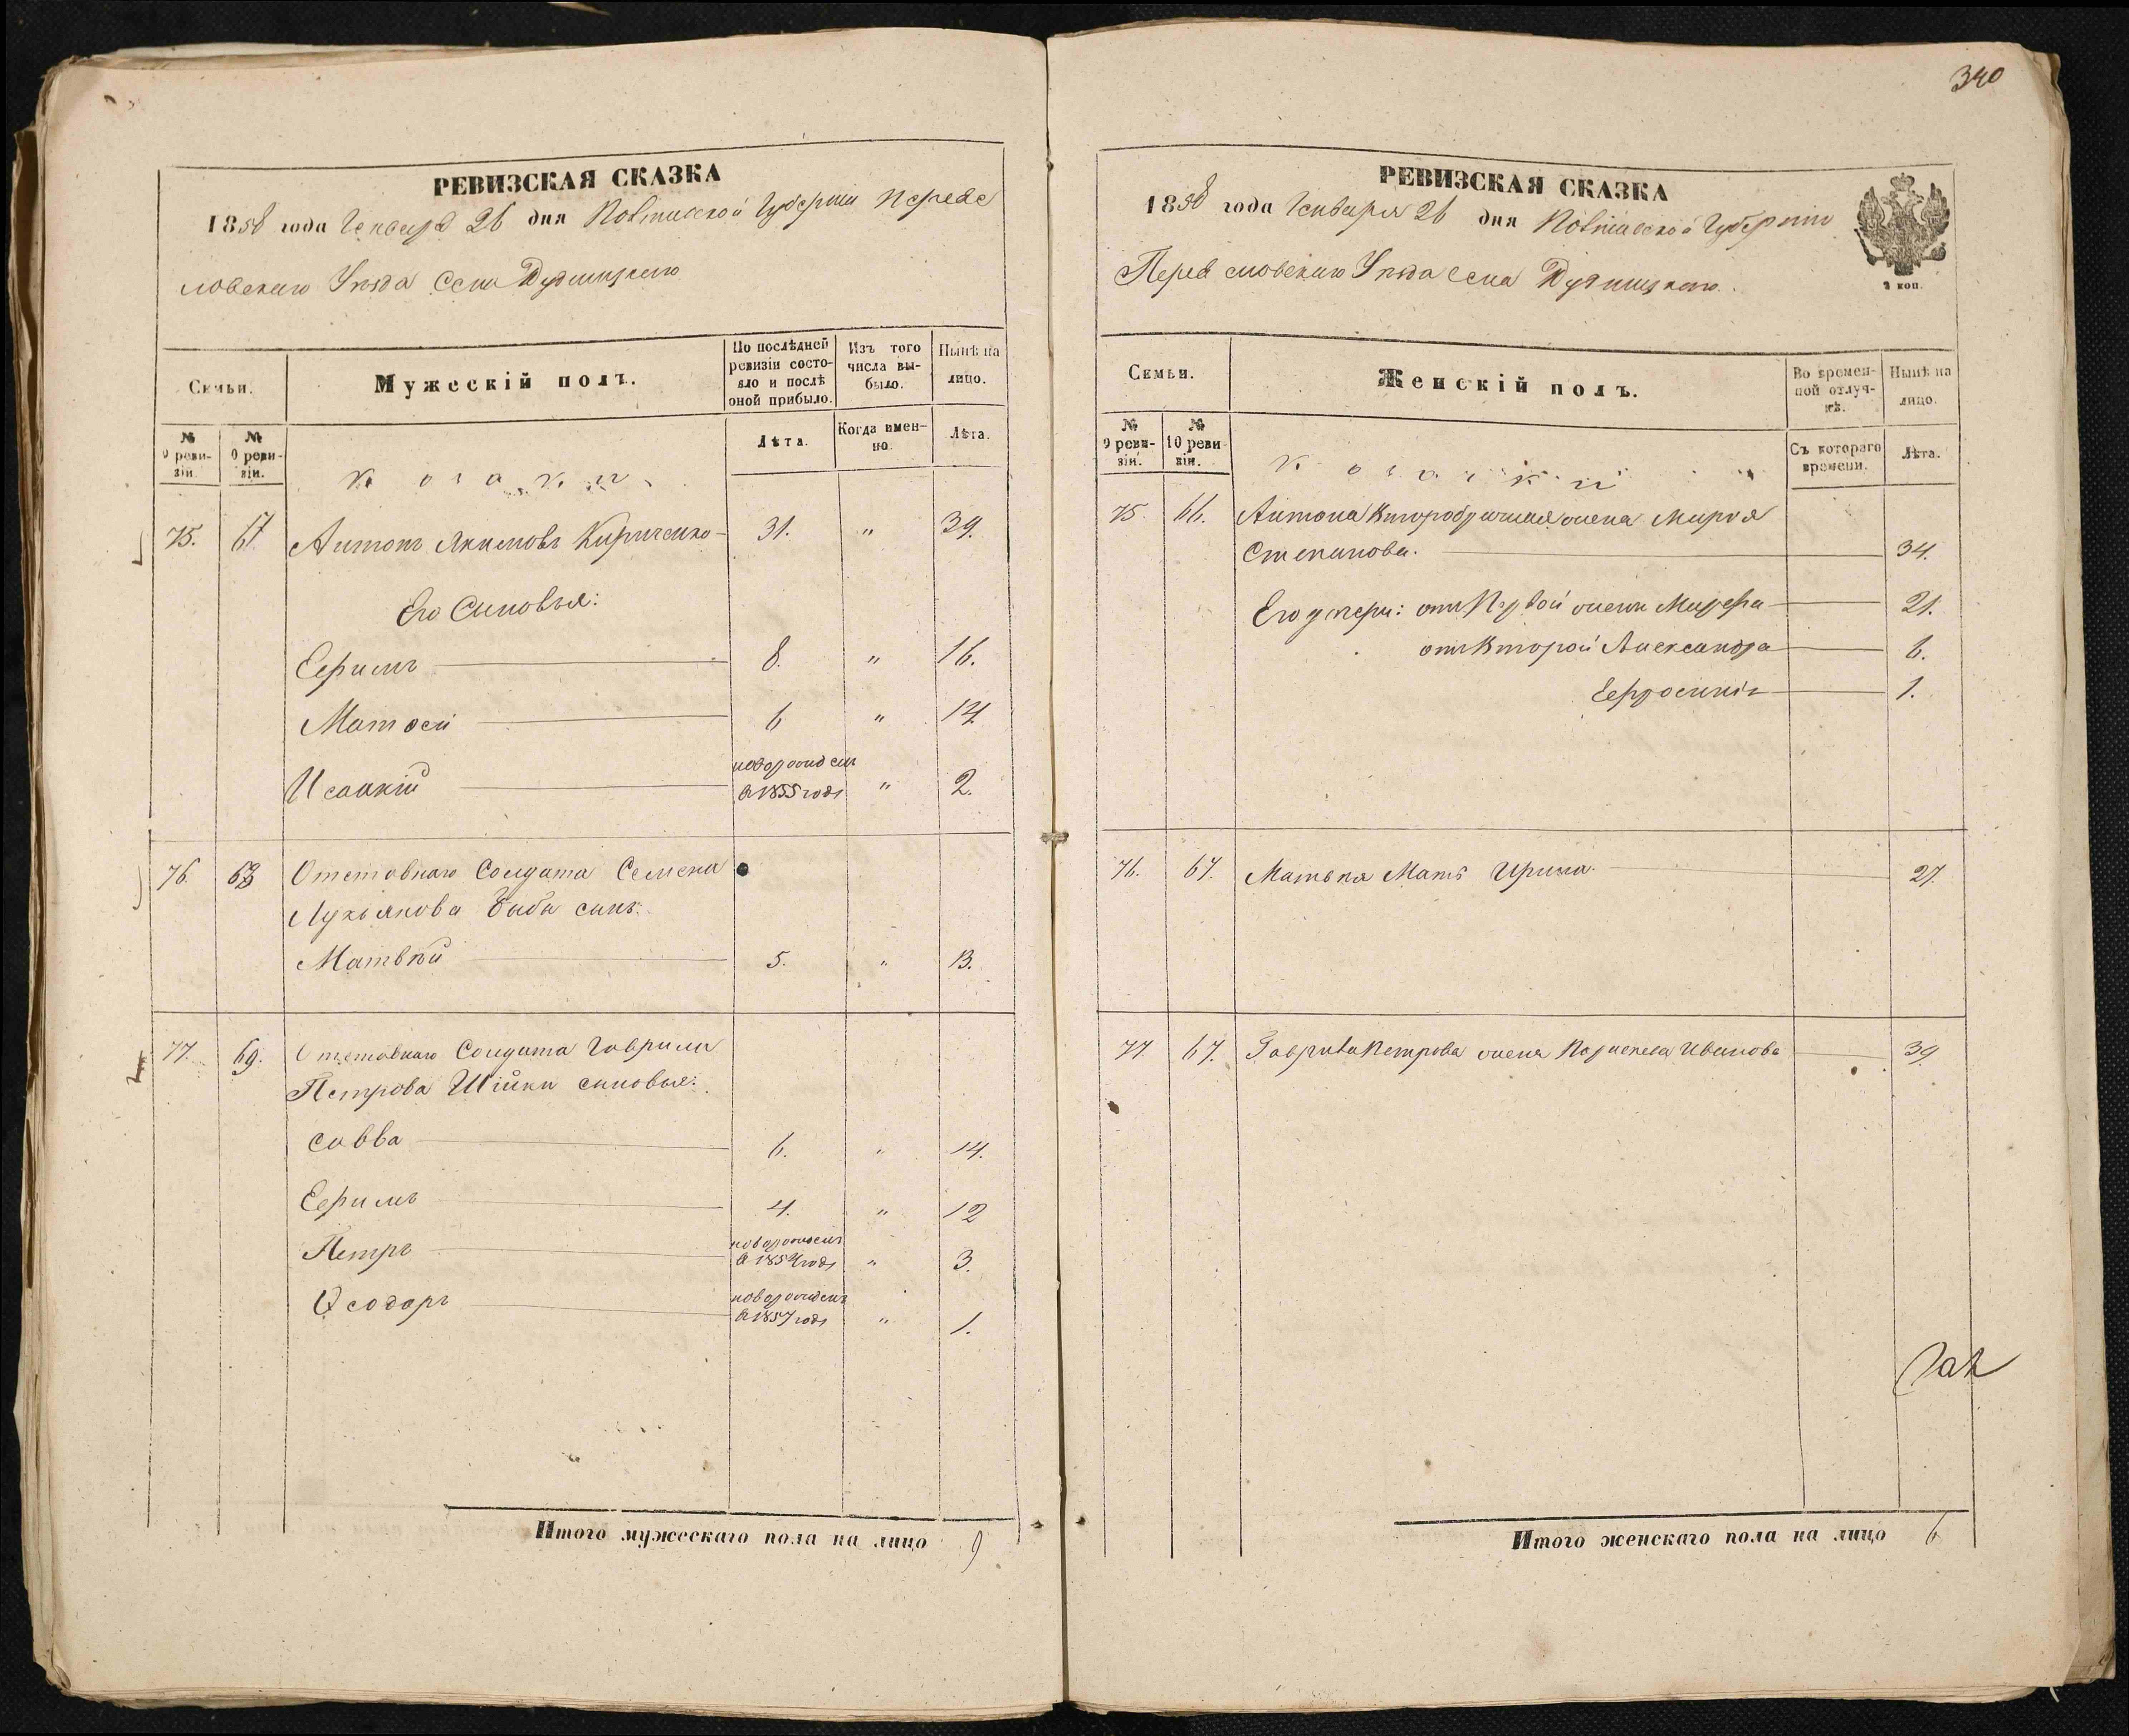 340
РЕВИЗСКАЯ СКАЗКА
1858 года Генваря 26 дня Полтавской Губерніи Переяс
ловскаго Уѣзда Села
Семьи.
Мужескій полъ.
По послѣдней ревизіи состо-
яло и послѣ
оной прибыло.
Изъ того
числа вы-
было.
Нынѣ на
лицо.
№
9 реви-
зіи.
№
10 реви-
зіи.
Лѣта.
Когда имен-
но.
Лѣта.
Козаки
75. 67. Антонъ Якимовъ Кириченко 31. " 39.
Его Сыновья:
Ефимъ 8. " 16.
Матвей 6 " 14.
Исаакій новорожденъ
в 1855 годѣ " 2.
76. 68 Отставнаго Солдата Семена
Лукьянова Бабы сынъ:
Матвѣй 5. " 13.
77. 69. Отставнаго Солдата Гаврилы
Петрова Шійки сыновья:
Савва 6. " 14.
Ефимъ 4. " 12
Петръ новорожденъ
в 1854 годѣ " 3.
Ѳеодоръ новорожденъ
в 1857 годѣ " 1.
Итого мужескаго пола на лицо 9
РЕВИЗСКАЯ СКАЗКА
1858 года Генваря 26 дня Полтавской Губерніи
Переясловскаго Уѣзда Села
2 коп.
Семьи.
Женскій полъ.
Во времен-
ной отлуч-
кѣ.
Нынѣ на
лицо.
№
9 реви-
зіи.
№
10 реви-
зіи.
Съ котораго
времени.
Лѣта.
Козачки
75 66. Антона второбрачная жена Марья
Степанова. 34.
Его дчери: отъ Первой жены 21.
отъ Второй Александра 6.
Ефросинія 1.
76. 67. Матвѣя Мать Ирина. 27.
77 67. Гаврила Петрова жена Параскева Иванова 39
Итого женскаго пола на лицо 6